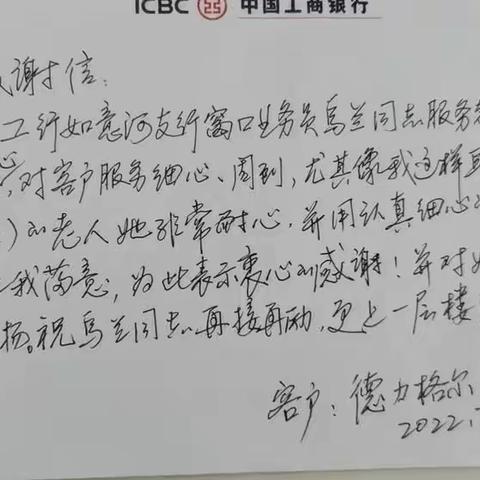 ICBC 中国工商银行
谢信:
工行如意河支行窗口业务员乌兰同志服务
心,对客户服务细心、周到,尤其像我这样
)的老人她非常耐心,并用认真细心
我满意,为此表示衷心的感谢!并对
扬。祝乌兰同志再接再励,更上一层楼
客户:德力格尔
2022.